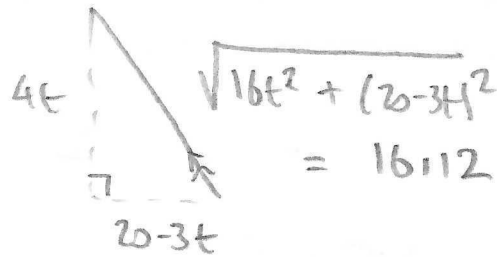 4t
√16t² + (20-3t)²
= 16.12
20-3t